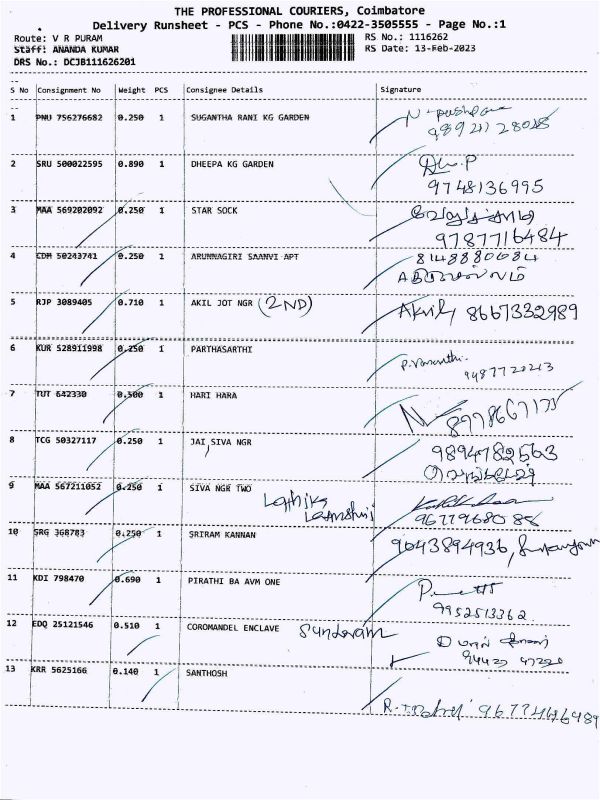 THE PROFESSIONAL COURIERS, Coimbatore
Delivery Runsheet - PCS - Phone No.:0422-3505555 - Page No.:1
Route: V R PURAM RS No.: 1116262
Staff: ANANDA KUMAR RS Date: 13-Feb-2023
DRS No.: DCJB111626201
S No Consignment No Weight PCS Consignee Details Signature
1 PNU 756276682 0.250 1 SUGANTHA RANI KG GARDEN
2 SRU 500022595 0.890 1 DHEEPA KG GARDEN
9748136995
3 MAA 569202092 0.250 1 STAR SOCK
9787716484
4 CDM 50243741 0.250 1 ARUNNAGIRI SAANVI APT 8148880684
5 RJP 3089405 0.710 1 AKIL JOT NGR (2ND) Akil 8667332989
6 KUR 528911998 0.250 1 PARTHASARTHI
7 TUT 642330 0.500 1 HARI HARA
8978667175
8 TCG 50327117 0.250 1 JAI SIVA NGR 9894782563
9 MAA 567211052 0.250 1 SIVA NGR TWO
9677968088
10 SRG 368783 0.250 1 SRIRAM KANNAN 9043894936,
11 KDI 798470 0.690 1 PIRATHI BA AVM ONE
9952513362
12 EDQ 25121546 0.510 1 COROMANDEL ENCLAVE Sundaram
13 KRR 5625166 0.140 1 SANTHOSH